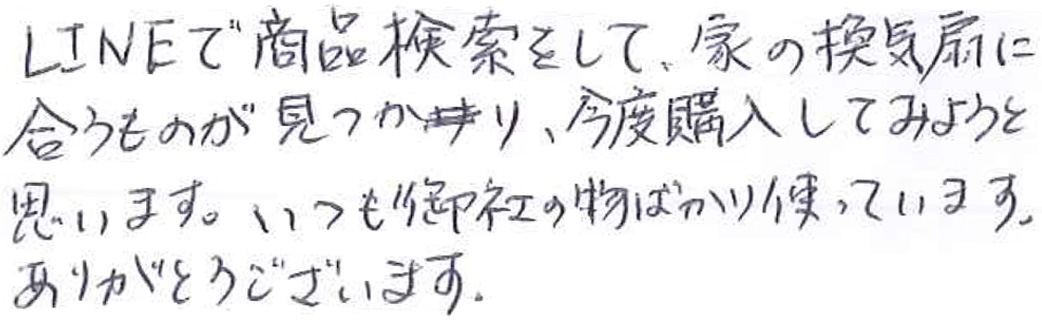 LINEで商品検索をして、家の換気扇に
合うものが見つかり、今度購入してみようと
思います。いつも御社の物ばかり使っています。
ありがとうございます。